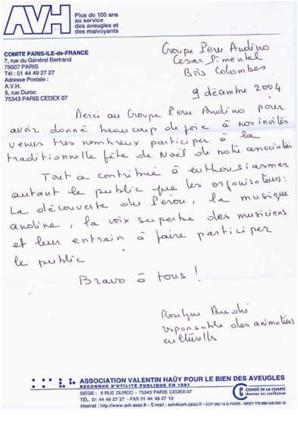 AVH
Plus de 100 ans
au service
des aveugles et
des malvoyants
COMITE PARIS-ILE-DE-FRANCE
7, rue du Général Bertrand
75007 PARIS
Tél : 01 44 49 27 27
Adresse postale :
A.V.H.
5, rue Duroc
75343 PARIS CEDEX 07
Groupe Peru Andino
Cesar Pimentel
Bois Colombes
9 décembre 2004
Merci au Groupe Peru Andino pour
avoir donné beaucoup de joie à nos invités
venus très nombreux participer à la
traditionnelle fête de Noël de notre association
Tout a contribué à enthousiasmer
autant le public que les organisateurs :
la découverte du Pérou, la musique
andine, la voix superbe des musiciens
et leur entrain à faire participer
le public
Bravo à tous !
Roselyne
responsable des animations
culturelles
ASSOCIATION VALENTIN HAÜY POUR LE BIEN DES AVEUGLES
RECONNUE D'UTILITÉ PUBLIQUE EN 1891
SIÈGE : 5 RUE DUROC - 75343 PARIS CEDEX 07
TÉL. 01 44 49 27 27 - FAX 01 44 49 27 10
COMITÉ DE LA CHARTE